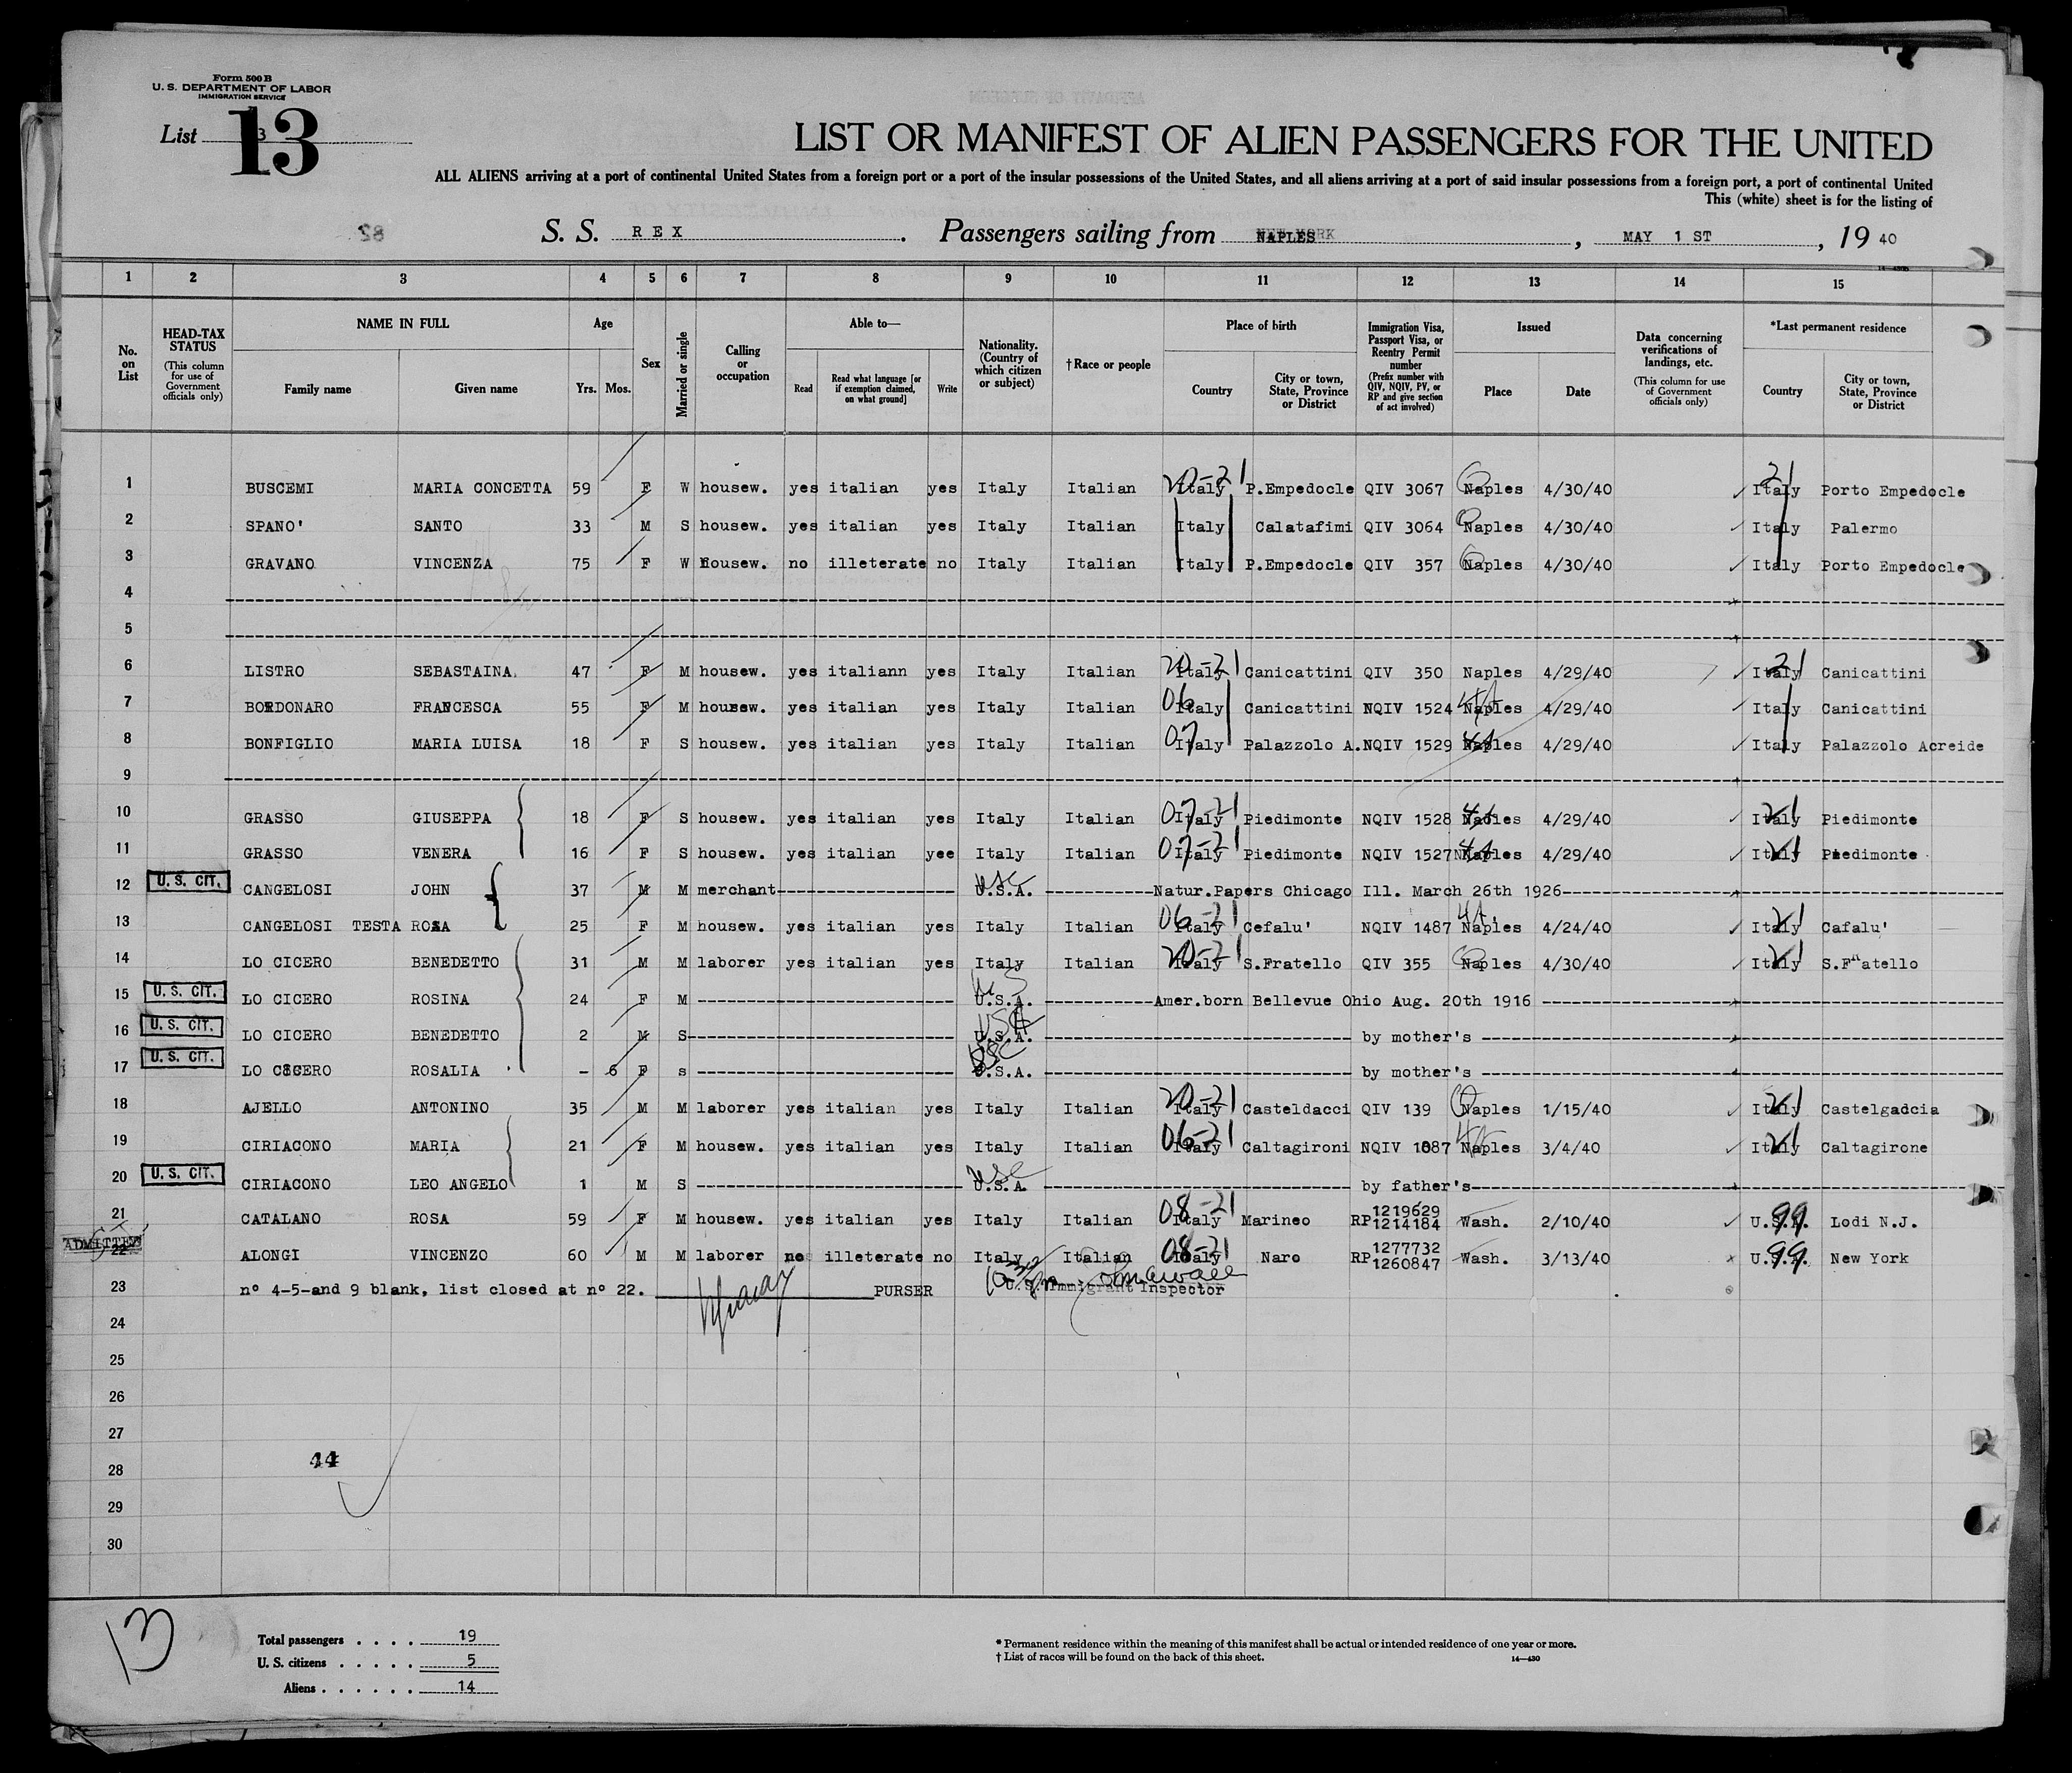 Form 500 B
U. S. DEPARTMENT OF LABOR
IMMIGRATION SERVICE
List 13
LIST OR MANIFEST OF ALIEN PASSENGERS FOR THE UNITED
ALL ALIENS arriving at a port of continental United States from a foreign port or a port of the insular possessions of the United States, and all aliens arriving at a port of said insular possessions from a foreign port, a port of continental United
This (white) sheet is for the listing of
S. S. REX. Passengers sailing from NAPLES, MAY 1 ST, 19 40
1 2 3 4 5 6 7 8 9 10 11 12 13 14 15
No. on List
HEAD-TAX STATUS (This column for use of Government officials only)
NAME IN FULL Family name Given name
Age Yrs. Mos.
Sex
Married or single
Calling or occupation
Able to— Read Read what language [or if exemption claimed, on what ground] Write
Nationality. (Country of which citizen or subject)
†Race or people
Place of birth Country City or town, State, Province or District
Immigration Visa, Passport Visa, or Reentry Permit number (Prefix number with QIV, NQIV, PV, or RP and give section of act involved)
Issued Place Date
Data concerning verifications of landings, etc. (This column for use of Government officials only)
*Last permanent residence Country City or town, State, Province or District
1 BUSCEMI MARIA CONCETTA 59 F W housew. yes italian yes Italy Italian 20-21 Italy P.Empedocle QIV 3067 Naples 4/30/40 21 Italy Porto Empedocle
2 SPANO' SANTO 33 M S housew. yes italian yes Italy Italian Italy Calatafimi QIV 3064 Naples 4/30/40 Italy Palermo
3 GRAVANO VINCENZA 75 F W housew. no illeterate no Italy Italian Italy P.Empedocle QIV 357 Naples 4/30/40 Italy Porto Empedocle
4
5
6 LISTRO SEBASTAINA 47 F M housew. yes italiann yes Italy Italian 20-21 Italy Canicattini QIV 350 Naples 4/29/40 21 Italy Canicattini
7 BORDONARO FRANCESCA 55 F M housew. yes italian yes Italy Italian 06 Italy Canicattini NQIV 1524 Naples 4/29/40 Italy Canicattini
8 BONFIGLIO MARIA LUISA 18 F S housew. yes italian yes Italy Italian 07 Italy Palazzolo A. NQIV 1529 Naples 4/29/40 Italy Palazzolo Acreide
9
10 GRASSO GIUSEPPA 18 F S housew. yes italian yes Italy Italian 07-21 Italy Piedimonte NQIV 1528 Naples 4/29/40 21 Italy Piedimonte
11 GRASSO VENERA 16 F S housew. yes italian yee Italy Italian 07-21 Italy Piedimonte NQIV 1527 Naples 4/29/40 21 Italy Piedimonte
12 U. S. CIT. CANGELOSI JOHN 37 M M merchant USC U.S.A. Natur.Papers Chicago Ill. March 26th 1926
13 CANGELOSI TESTA ROSA 25 F M housew. yes italian yes Italy Italian 06-21 Italy Cefalu' NQIV 1487 Naples 4/24/40 21 Italy Cafalu'
14 LO CICERO BENEDETTO 31 M M laborer yes italian yes Italy Italian 20-21 Italy S.Fratello QIV 355 Naples 4/30/40 21 Italy S.Fratello
15 U. S. CIT. LO CICERO ROSINA 24 F M U.S.A. Amer.born Bellevue Ohio Aug. 20th 1916
16 U. S. CIT. LO CICERO BENEDETTO 2 M S USA U.S.A. by mother's
17 U. S. CIT. LO CICERO ROSALIA - 6 F s USC U.S.A. by mother's
18 AJELLO ANTONINO 35 M M laborer yes italian yes Italy Italian 20-21 Italy Casteldacci QIV 139 Naples 1/15/40 21 Italy Castelgadcia
19 CIRIACONO MARIA 21 F M housew. yes italian yes Italy Italian 06-21 Italy Caltagironi NQIV 1087 Naples 3/4/40 21 Italy Caltagirone
20 U. S. CIT. CIRIACONO LEO ANGELO 1 M S USC U.S.A. by father's
21 CATALANO ROSA 59 F M housew. yes italian yes Italy Italian 08-21 Italy Marineo RP 1219629 1214184 Wash. 2/10/40 99 U.S.A. Lodi N.J.
ADMITTED 22 ALONGI VINCENZO 60 M M laborer no illeterate no Italy Italian 08-21 Italy Naro RP 1277732 1260847 Wash. 3/13/40 99 U.S.A. New York
23 n° 4-5-and 9 blank, list closed at n° 22. PURSER U.S. Immigrant Inspector
24
25
26
27
28 44
29
30
13
Total passengers . . . . 19
U. S. citizens . . . . . 5
Aliens . . . . . . 14
* Permanent residence within the meaning of this manifest shall be actual or intended residence of one year or more.
† List of races will be found on the back of this sheet. 14—430